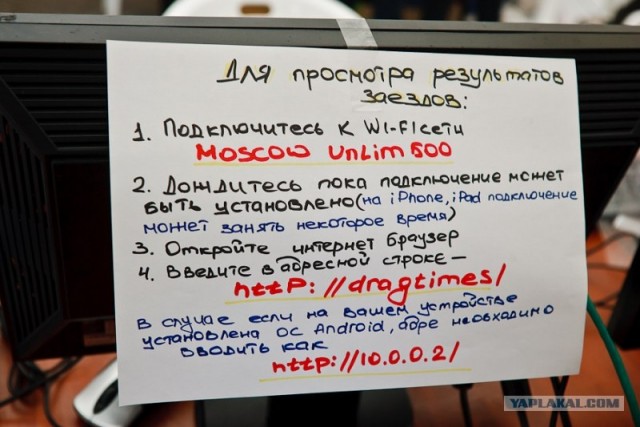 Для просмотра результатов
заездов:
1. Подключитесь к Wi-Fi сети
MOSCOW UnLim 500
2. Дождитесь пока подключение может
быть установлено (на iPhone, iPad подключение
может занять некоторое время)
3. Откройте интернет браузер
4. Введите в адресной строке –
http://dragtimes/
В случае если на вашем устройстве
установлена ОС Android, адре необхадимо
вводить как
http://10.0.0.2/
YAPLAKAL.COM